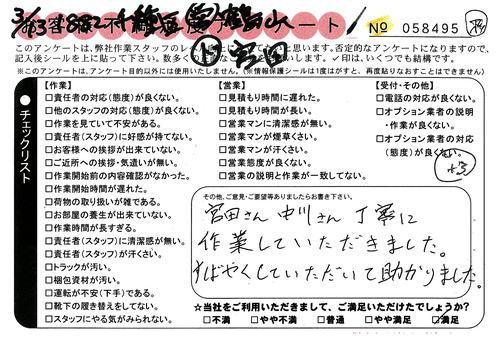 № 058495
このアンケートは、弊社作業スタッフのレ
と思います。否定的なアンケートになりますので、
記入後シールを上に貼って下さい。
✓印は、いくつでも結構です。
※このアンケートは、アンケート目的以外には使用いたしません。(※情報保護シールは1度がはすと、再度貼りなおすことができません)
チェックリスト
【作業】
□責任者の対応(態度)が良くない。
□他のスタッフの対応(態度)が良くない。
□作業を見ていて不安がある。
□責任者(スタッフ)に好感が持てない。
□お客様への挨拶が出来ていない。
□ご近所への挨拶・気遣いが無い。
□作業開始前の内容確認がなかった。
□作業開始時間が遅れた。
□荷物の取り扱いが雑である。
□お部屋の養生が出来ていない。
□作業時間が長すぎる。
□責任者(スタッフ)に清潔感が無い。
□責任者(スタッフ)が汗くさい。
□トラックが汚い。
□梱包資材が汚い。
□運転が不安(下手)である。
□靴下の履き替えをしてない。
□スタッフにやる気がみられない。
【営業】
□見積もり時間に遅れた。
□見積もり時間が長い。
□営業マンに清潔感が無い。
□営業マンが煙草くさい。
□営業マンが汗くさい。
□営業態度が良くない。
□営業の説明と作業が一致してない。
【受付・その他】
□電話の対応が良くない。
□オプション業者の説明
・作業が良くない。
□オプション業者の対応
(態度)が良くない。
その他、ご意見・ご要望等ありましたらお書き下さい。
宮田さん 中川さん 丁寧に
作業していただきました。
すばやくしていただいて助かりました。
☆当社をご利用いただきまして、ご満足いただけたでしょうか?
□不満 □やや不満 □普通 □やや満足 ☑満足